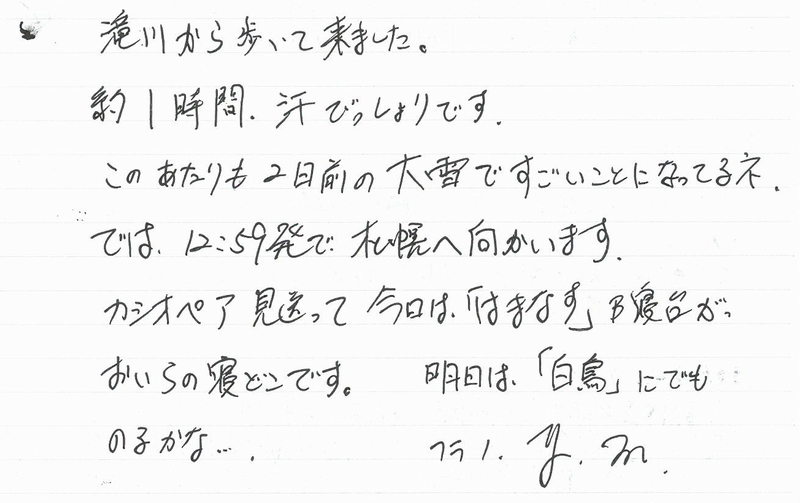 滝川から歩いて来ました。
約1時間、汗びっしょりです.
このあたりも2日前の大雪ですごいことになってるネ.
では、12:59発で札幌へ向かいます.
カシオペア見送って今日は、「はまなす」B寝台がっ
おいらの寝どこです。 明日は、「白鳥」にでも
のろかな… . フラノ. Y. m.